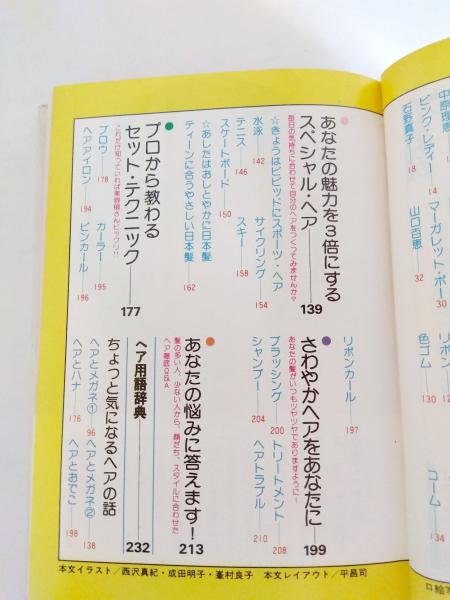 中原理恵
ピンク・レディー 14
石野真子 18
マーガレット・ポー 30
山口百恵 32
リボン
色ゴム 130
コーム 134
口絵
あなたの魅力を3倍にする
スペシャル・ヘア 139
毎日の気持ちに合わせて自分のヘアをつくってみませんか?
☆きょうはビビッドにスポーツ・ヘア
水泳 142
サイクリング 154
テニス 146
スキー 158
スケートボード 150
☆あしたはおしとやかに日本髪
ティーンに合うやさしい日本髪 162
プロから教わる
セット・テクニック 177
これだけ知っていれば美容師さんビックリ!!
ブロウ 178
カーラー 195
ヘアアイロン 194
ピンカール 196
リボンカール 197
さわやかヘアをあなたに 199
あなたの髪がいつもツヤツヤでありますように!
ブラッシング 200
トリートメント 208
シャンプー 204
ヘアトラブル 210
あなたの悩みに答えます! 213
髪の多い人、少ない人から、顔だち、スタイルに合わせた
ヘア徹底Q&A
ヘア用語辞典 232
ちょっと気になるヘアの話
ヘアとメガネ① 96
ヘアとメガネ② 138
ヘアとハナ 176
ヘアとおでこ 198
本文イラスト/西沢真紀・成田明子・峯村良子 本文レイアウト/平昌司